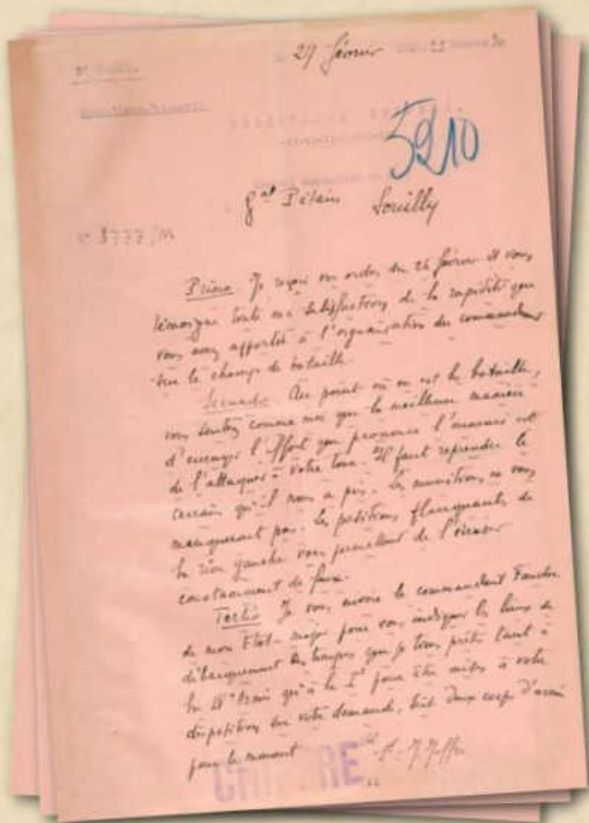 27 février
5210
Gal Pétain Souilly
N° 8777/M
Primo Je reçois vos ordres du 26 février et vous
témoigne toute ma satisfaction de la rapidité que
vous avez apportée à l'organisation du commandement
sur le champ de bataille
Secundo Au point où en est la bataille,
vous sentez comme moi que la meilleure manière
d'enrayer l'effort que prononce l'ennemi est
de l'attaquer à votre tour. Il faut reprendre le
terrain qu'il nous a pris. Les munitions ne vous
manqueront pas. Les positions flanquantes de
la rive gauche vous permettent de l'écraser
constamment de feux.
Tertio Je vous envoie le commandant
de mon Etat-major pour vous indiquer les lieux de
débarquement des troupes que je tiens prêtes tant à
la qu'à la pour être mises à votre
disposition sur votre demande, soit deux corps d'armée
pour le moment
J. Joffre
CHIFFRE